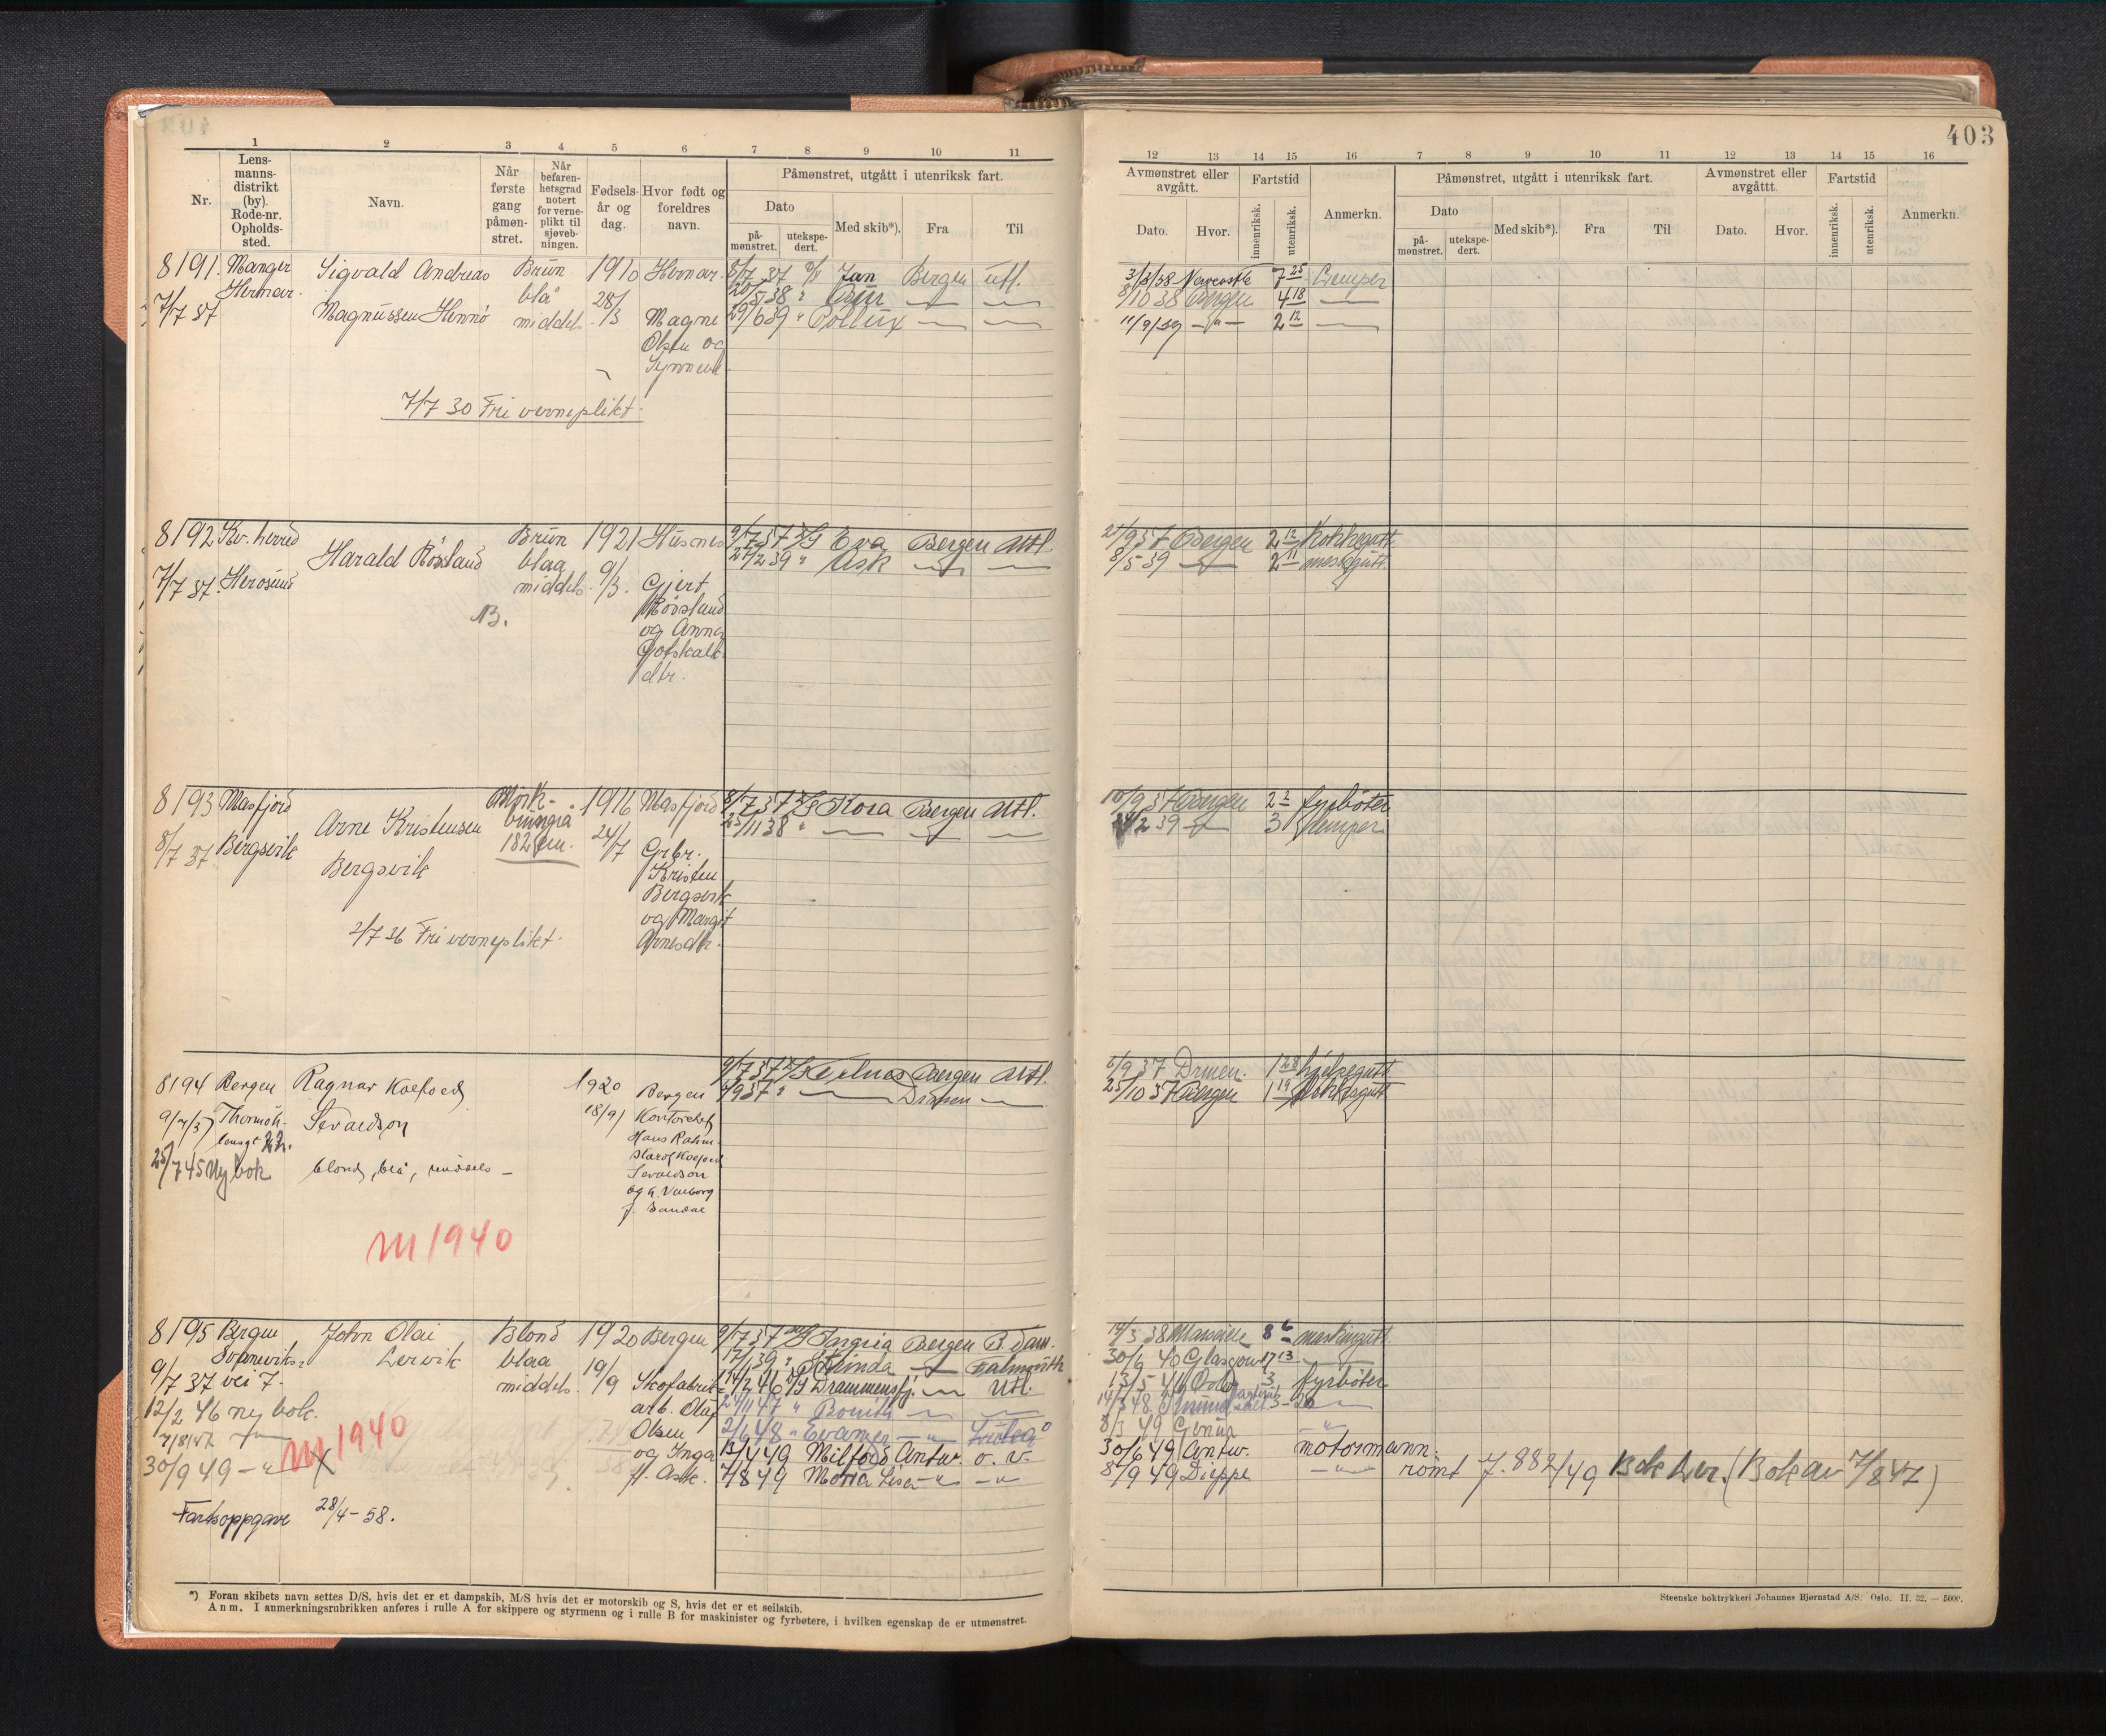 403
1 2 3 4 5 6 7 8 9 10 11
Nr.
Lens-
manns-
distrikt
(by).
Rode-nr.
Opholds-
sted.
Navn.
Når
første
gang
påmøn-
stret.
Når
befaren-
hetsgrad
notert
for verne-
plikt til
sjøveb-
ningen.
Fødsels-
år og
dag.
Hvor født og
foreldres
navn.
Påmønstret, utgått i utenriksk fart.
Dato
på-
mønstret.
utekspe-
dert.
Med skib*).
Fra
Til
12 13 14 15 16 7 8 9 10 11 12 13 14 15 16
Avmønstret eller
avgått.
Fartstid
Dato.
Hvor.
innenriksk.
utenriksk.
Anmerkn.
Påmønstret, utgått i utenriksk fart.
Dato
på-
mønstret.
utekspe-
dert.
Med skib*).
Fra
Til
Avmønstret eller
avgåttt.
Fartstid
Dato.
Hvor.
innenriksk.
utenriksk.
Anmerkn.
8191. Manger Sigvald Andreas Brun 1910 Hernar. 37 Jan Bergen utl.
Hernar. blå 28/3 20/5 38 "
7/7 37 Magnussen Hennø middels Magne 29/6 39 " Pollux
Olsen og
7/7 30 Fri verneplikt.
3/3/38 Newcastle 7 25 Lemper
8/10 38 Bergen 4 18
11/9/39 -"- 2 12
8192 Kv. herred Harald Røssland Brun 1921 Husnes 9/7 37 Eva Bergen Utl.
7/7 37. Herøsund blaa 9/3. 27/2 39 " Ask
middels Gjert
B. Røssland
og Anna
Gotskalk
dtr.
21/9 37 Bergen 2 12 Kokkegutt
8/5 39 2 11 messegutt.
8193 Masfjord Arne Kristensen Mørk- 1916 Masfjord 8/7 37 Kora Bergen Utl.
8/7 37 Bergsvik Bergsvik 182 cm. 24/7 Grbr. 25/11 38 "
Kristen
Bergsvik
og Margit
Arnesdtr.
2/7 36 Fri verneplikt.
10/9 37 Bergen 2 2 fyrbøter
2 39 3 lemper
8194 Bergen Ragnar Koefoed 1920 Bergen 9/7 37 Bergen Utl.
9/7/37 Thormøh- Sevaldson 18/9 Kontorchef 9 37 " Drmen
lensgt 22. Hans Rahm-
25/7 45 Ny bok blond, blå, middels - Koefoed
Sevaldson
og
f. Sandal
M 1940
6/9 37 Drmen. 1 28 hjelpegutt
25/10 37 Bergen 1 19 dekksgutt
8195 Bergen John Olai Blond 1920 Bergen 9/7 37 Bergen
Svanevik- Lervik blaa 19/9 39 " Falmouth
9/7 37 vei 7. middels Skofabrik- 2 46 Drammensfj. Utl.
12/2 46 ny bok. arb. Olaf 11 47 " Ronith
7/8/47 Olsen 2/6 48 "
M 1940
30/9 49 -"- X og Inga 13/4 49 Milford Antw. o. v.
f. Ask. 7/8 49 Maria Lisa -"- -"-
Fartsoppgave 28/4-58.
3 38 Marseille 8 6 maskingutt
30/6 40 Glasgow 17 13
13/5 46 Oslo 3 fyrbøter
14/3 48 3-20
8/3 49 Genua "
30/6 49 Antw. motormann.
8/9 49 Dieppe -"- rømt J. 882/49 Bok Lev. (Bok av 7/8 47)
*) Foran skibets navn settes D/S, hvis det er et dampskib, M/S hvis det er motorskib og S, hvis det er et seilskib.
Anm. I anmerkningsrubrikken anføres i rulle A for skippere og styrmenn og i rulle B for maskinister og fyrbøtere, i hvilken egenskap de er utmønstret.
Steenske boktrykkeri Johannes Bjørnstad A/S. Oslo. II. 32. — 5000.